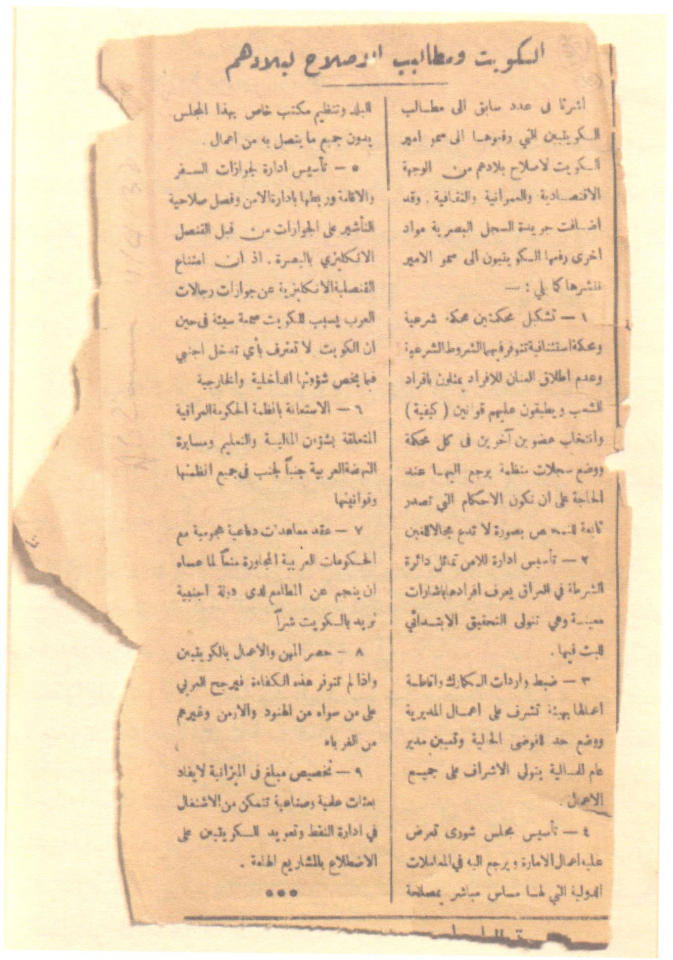 الكويت ومطاليب الاصلاح لبلادهم
اشرنا فى عدد سابق الى مطالب
الكويتيين التي رفعوها الى سمو امير
الكويت لاصلاح بلادهم من الوجهة
الاقتصادية والعمرانية والثقافية . وقد
اضافت جريدة السجل البصرية مواد
اخرى رفعها الكويتيون الى سمو الامير
ننشرها كما يلي : —
١ — تشكيل محكمتين محكمة شرعية
ومحكمة استئنافية تتوفر فيهما الشروط الشرعية
وعدم اطلاق العنان للافراد يمثلون بافراد
الشعب ويطبقون عليهم قوانين ( كيفية )
وانتخاب عضوين آخرين فى كل محكمة
ووضع سجلات منظمة يرجع اليها عند
الحاجة على ان تكون الاحكام التي تصدر
تابعة بصورة لا تدع مجالا
٢ — تأسيس ادارة للامن تماثل دائرة
الشرطة في العراق يعرف افرادها باشارات
معينة وهي تتولى التحقيق الابتدائي
للبت فيها .
٣ — ضبط واردات الكمارك واناطة
اعمالها بهيئة تشرف على اعمال المديرية
ووضع حد للفوضى الحالية وتعيين مدير
عام للمالية يتولى الاشراف على جميع
الاعمال .
٤ — تأسيس مجلس شورى تعرض
عليه اعمال الامارة ويرجع اليه في المعاملات
الدولية التي لها مساس مباشر بمصلحة
البلد وتنظيم مكتب خاص بهذا المجلس
يدون جميع ما يتصل به من اعمال .
٥ — تأسيس ادارة لجوازات السفر
والاقامة وربطها بادارة الامن وفصل صلاحية
التأشير على الجوازات من قبل القنصل
الانكليزي بالبصرة . اذ ان امتناع
القنصلية الانكليزية عن جوازات رجالات
العرب يسبب للكويت سمعة سيئة فى حين
ان الكويت لا تعترف بأي تدخل اجنبي
فيما يخص شؤونها الداخلية والخارجية
٦ — الاستعانة بانظمة الحكومة العراقية
المتعلقة بشؤون المالية والتعليم ومسايرة
النهضة العربية جنباً لجنب فى جميع انظمتها
وقوانينها
٧ — عقد معاهدات دفاعية هجومية مع
الحكومات العربية المجاورة منعاً لما عساه
ان ينجم عن المطامع لدى دولة اجنبية
تريد بالكويت شراً
٨ — حصر المهن والاعمال بالكويتيين
واذا لم تتوفر هذه الكفاءة فيرجح العربي
على من سواه من الهنود والارمن وغيرهم
من الغرباء
٩ — تخصيص مبلغ فى الميزانية لايفاد
بعثات علمية وصناعية تتمكن من الاشتغال
في ادارة النفط وتعويد الكويتيين على
الاضطلاع بالمشاريع الهامة .